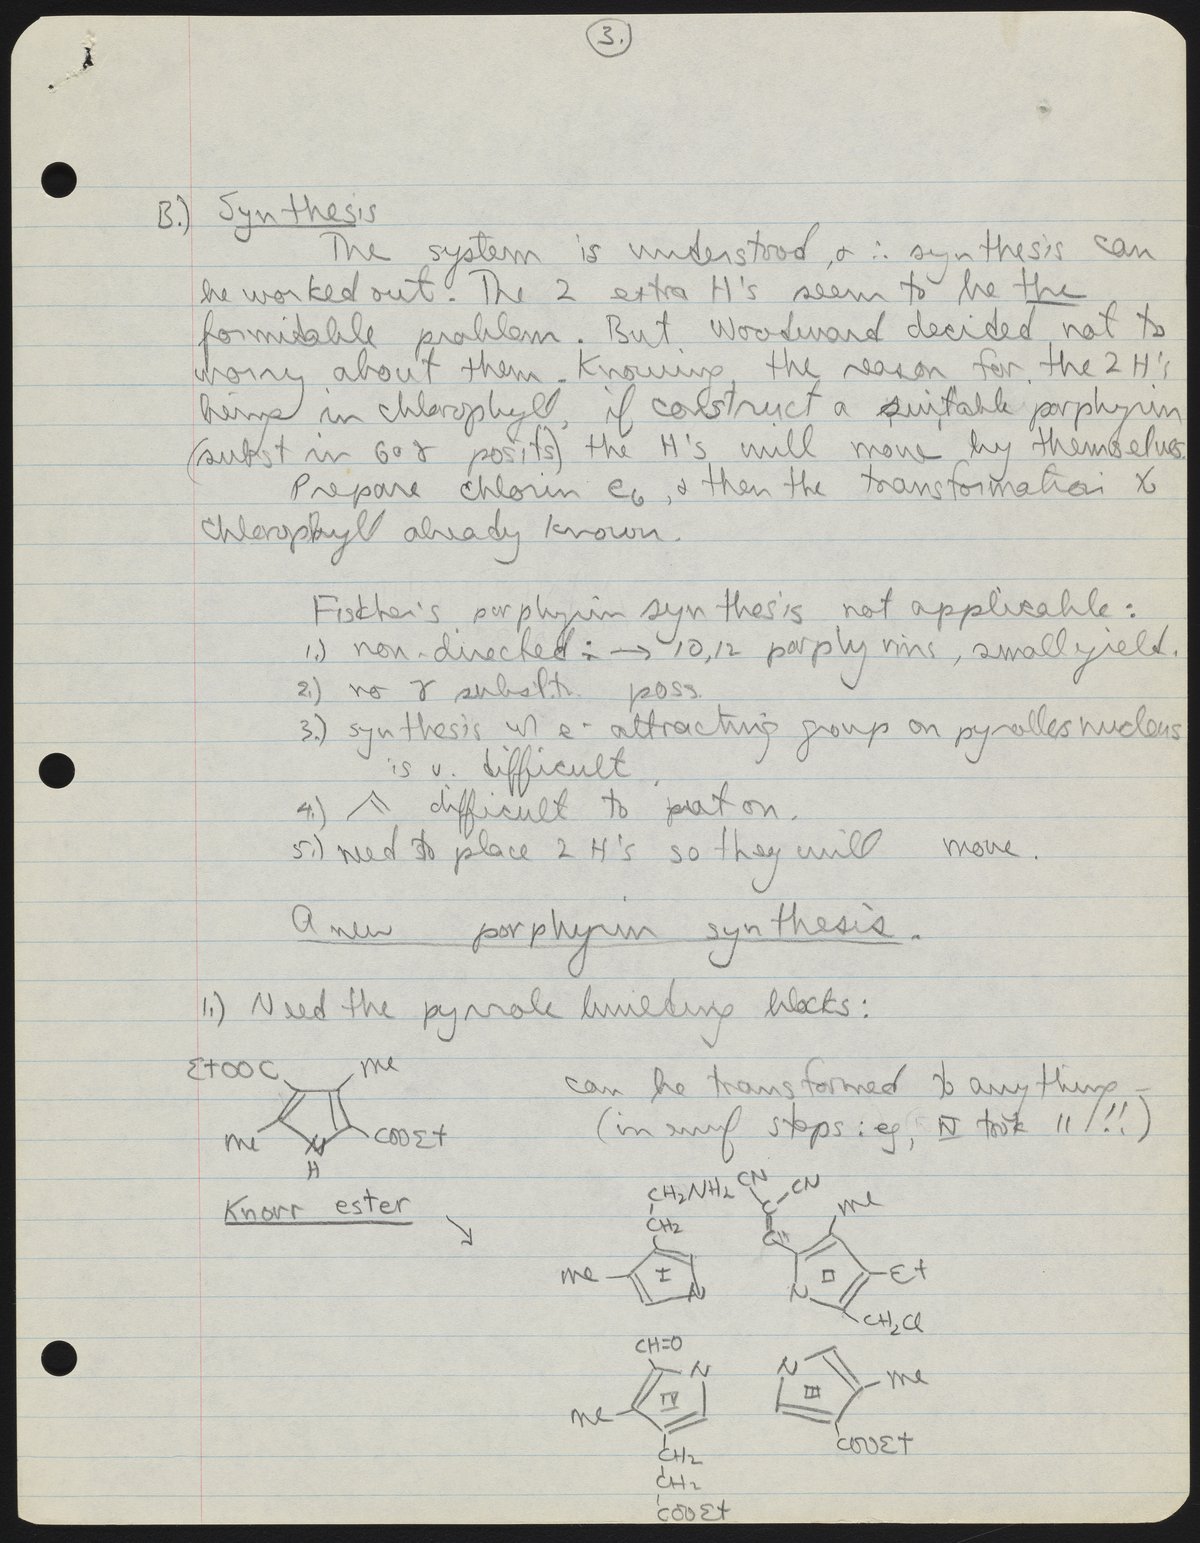 3.
B.) Synthesis
The system is understood, & ∴ synthesis can
be worked out. The 2 extra H's seem to be the
formidable problem. But Woodward decided not to
worry about them. Knowing the reason for the 2 H's
being in chlorophyll, if construct a suitable porphyrin
(subst in 6 & γ posits) the H's will move by themselves.
Prepare chlorin e6, & then the transformation to
chlorophyll already known.
Fischer's porphyrin synthesis not applicable:
1.) non-directed: → 10,12 porphyrins, small yield.
2.) no γ subst'n. poss.
3.) synthesis w/ e- attracting group on pyrolles nucleus
is v. difficult
4.) difficult to put on.
5.) need to place 2 H's so they will move.
A new porphyrin synthesis.
1.) Need the pyrrole building blocks:
EtOOC me
me N H COOEt
can be transformed to anything -
(in steps: eg, IV took 11!!!)
Knorr ester
CH2NH2 CN CN
CH2 C me
me I N C II Et
N CH2Cl
CH=O
N N me
me IV III
CH2 COOEt
CH2
COOEt